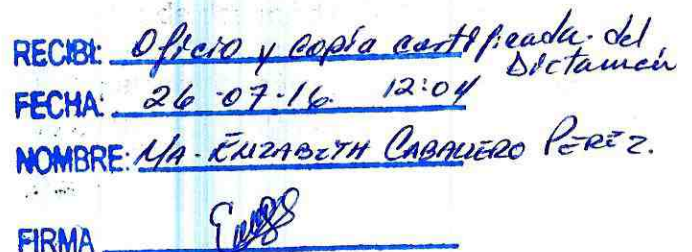 RECIBI: Oficio y copia certificada del Dictamen
FECHA: 26-07-16. 12:04
NOMBRE: MA. ELIZABETH CABALLERO PEREZ.
FIRMA